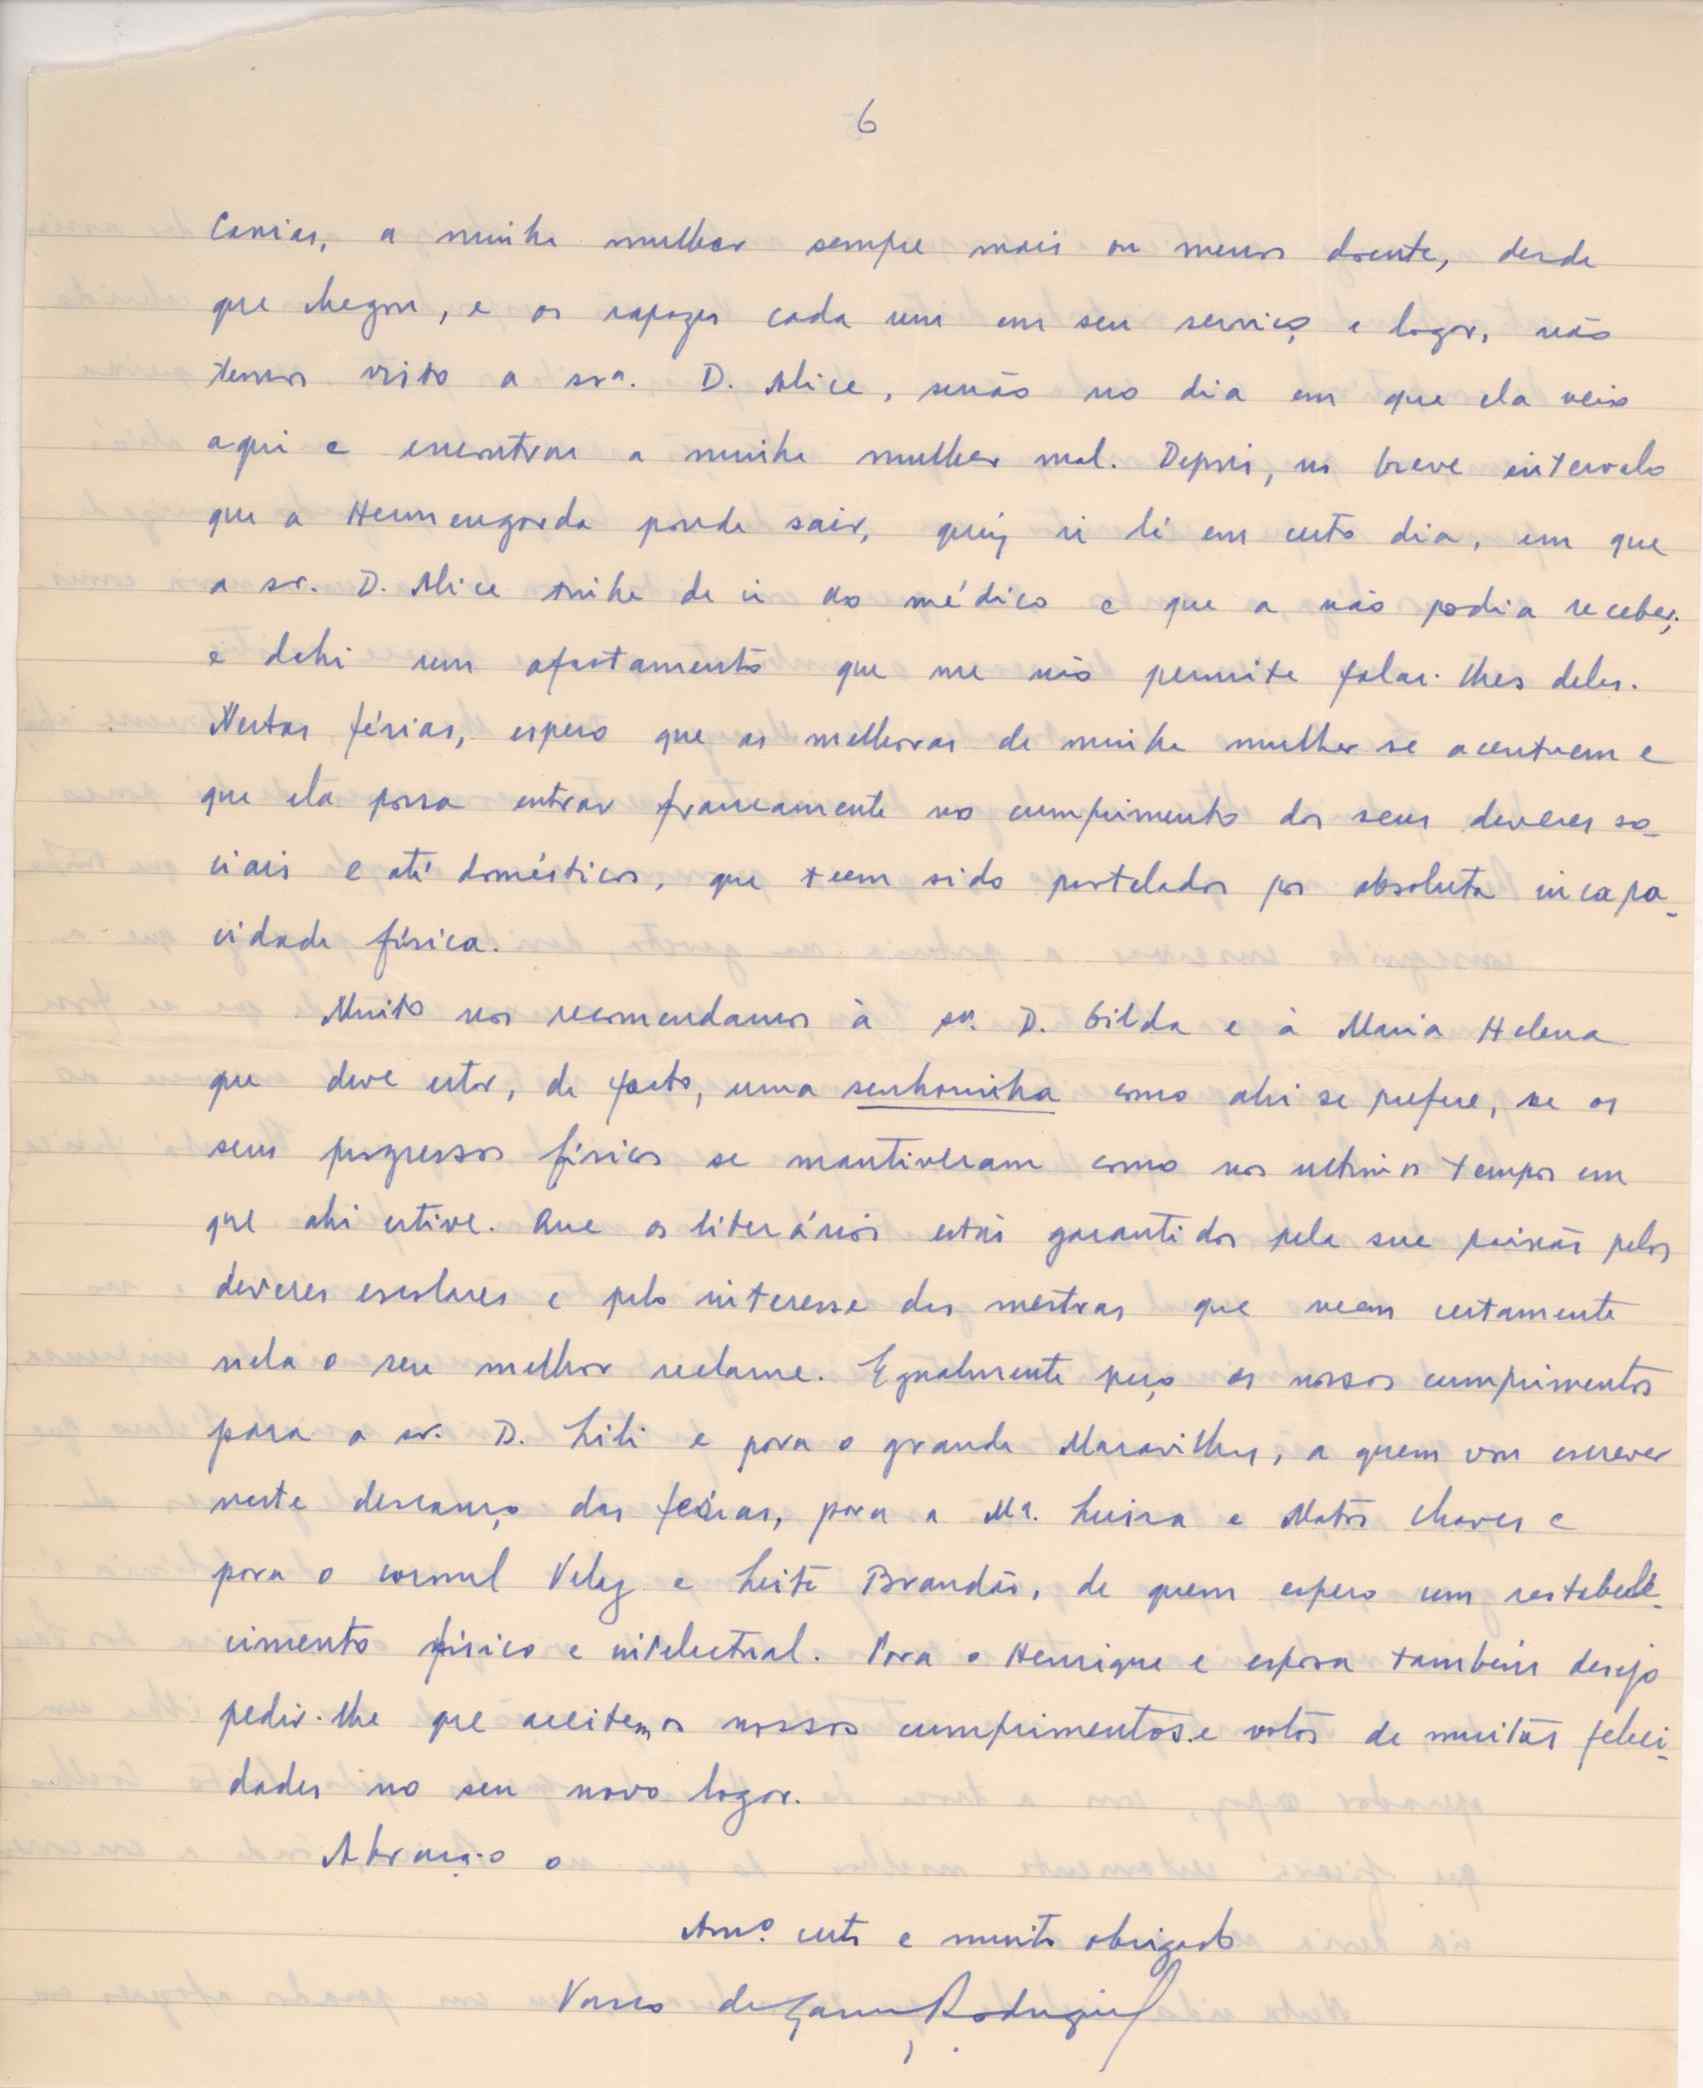 6
Caxias, a minha mulher sempre mais ou menos doente, desde
que chegou, e os rapazes cada um em seu serviço e logar, não
temos visto a srª. D. Alice, senão no dia em que ela veio
aqui e encontrou a minha mulher mal. Depois, no breve intervalo
que a Hermengarda poude sair, quiz ir lá em certo dia, em que
a sr. D. Alice tinha de ir ao médico e que a não podia receber;
e dahi um afastamento que me não permite falar-lhes deles.
Nestas férias, espero que as melhoras de minha mulher se acentuem e
que ela possa entrar francamente no cumprimento dos seus deveres so-
ciais e até domésticos, que teem sido postelados por absoluta incapa-
cidade física.
Muito nos recomendamos à sr. D. Gilda e à Maria Helena
que deve estar, de facto, uma senhorinha como ahi se prefere, se os
seus progressos físicos se mantiveram como nos ultimos tempos em
que ahi estive. Que os literários estão garantidos pela sua paixão pelos
deveres escolares e pelo interesse das mestras que veem certamente
nela o seu melhor reclame. Egualmente peço os nossos cumprimentos
para a sr. D. Lili e para o grande Maravilhas, a quem vou escrever
neste descanço das férias, para a Mª. Luisa e Matos Chaves e
para o consul Velez e Leite Brandão, de quem espero um restabele-
cimento físico e intelectual. Para o Henrique e esposa também desejo
pedir-lhe que aceitem os nossos cumprimentos e votos de muitas felici-
dades no seu novo logar.
Abraça-o o
Amº. certo e muito obrigado
Vasco de Gama Rodrigues